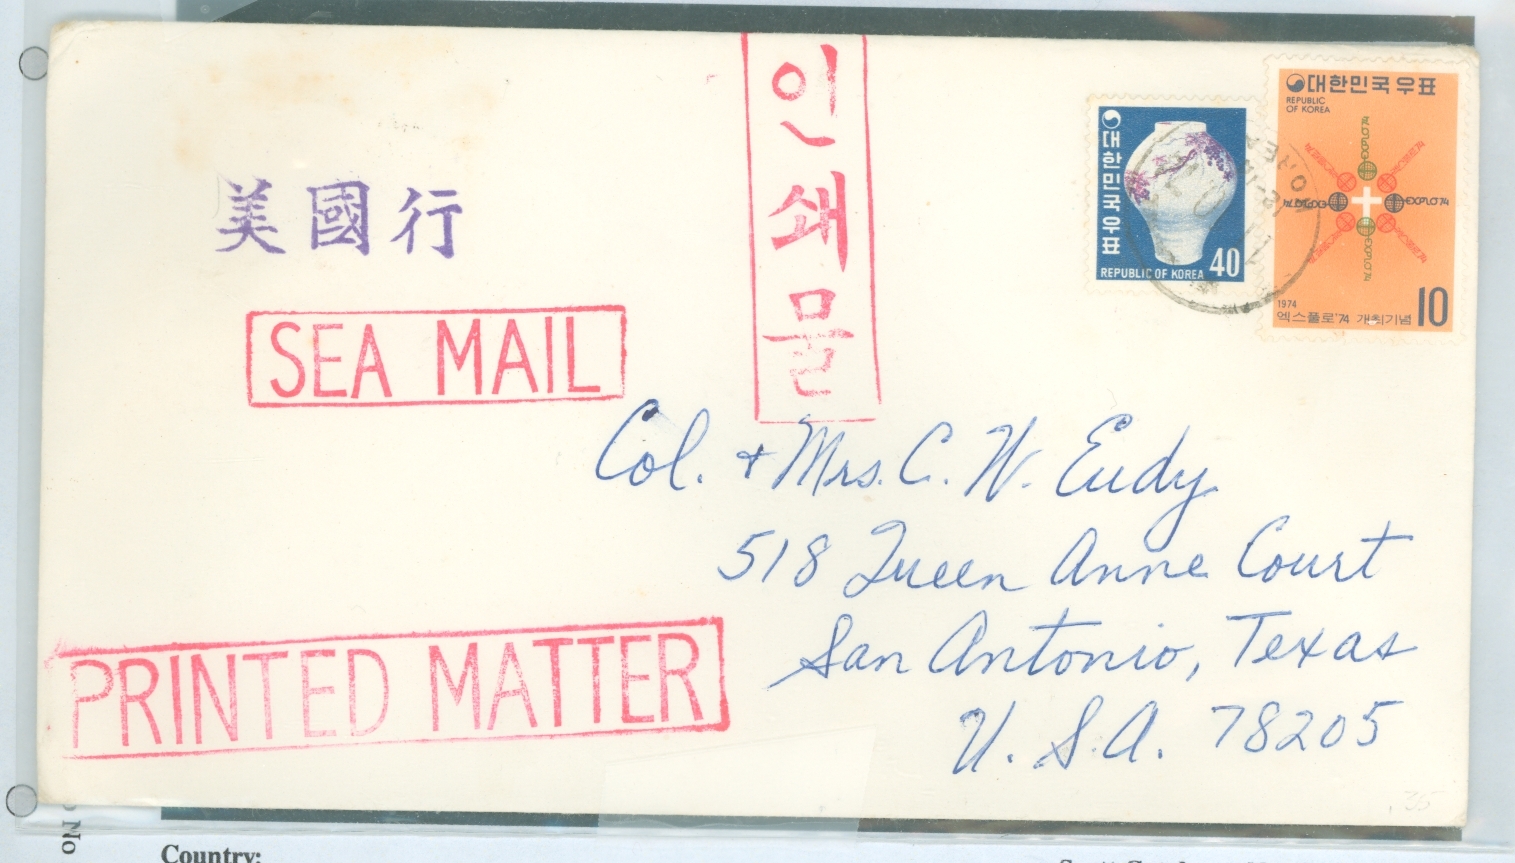 인쇄물
美國行
SEA MAIL
PRINTED MATTER
대한민국우표
REPUBLIC OF KOREA 40
대한민국우표
REPUBLIC
OF KOREA
EXPLO'74
1974
엑스플로'74 개최기념 10
KOREA
Col. + Mrs. C. W. Eudy
518 Queen Anne Court
San Antonio, Texas
U. S. A. 78205
35
No
Country: